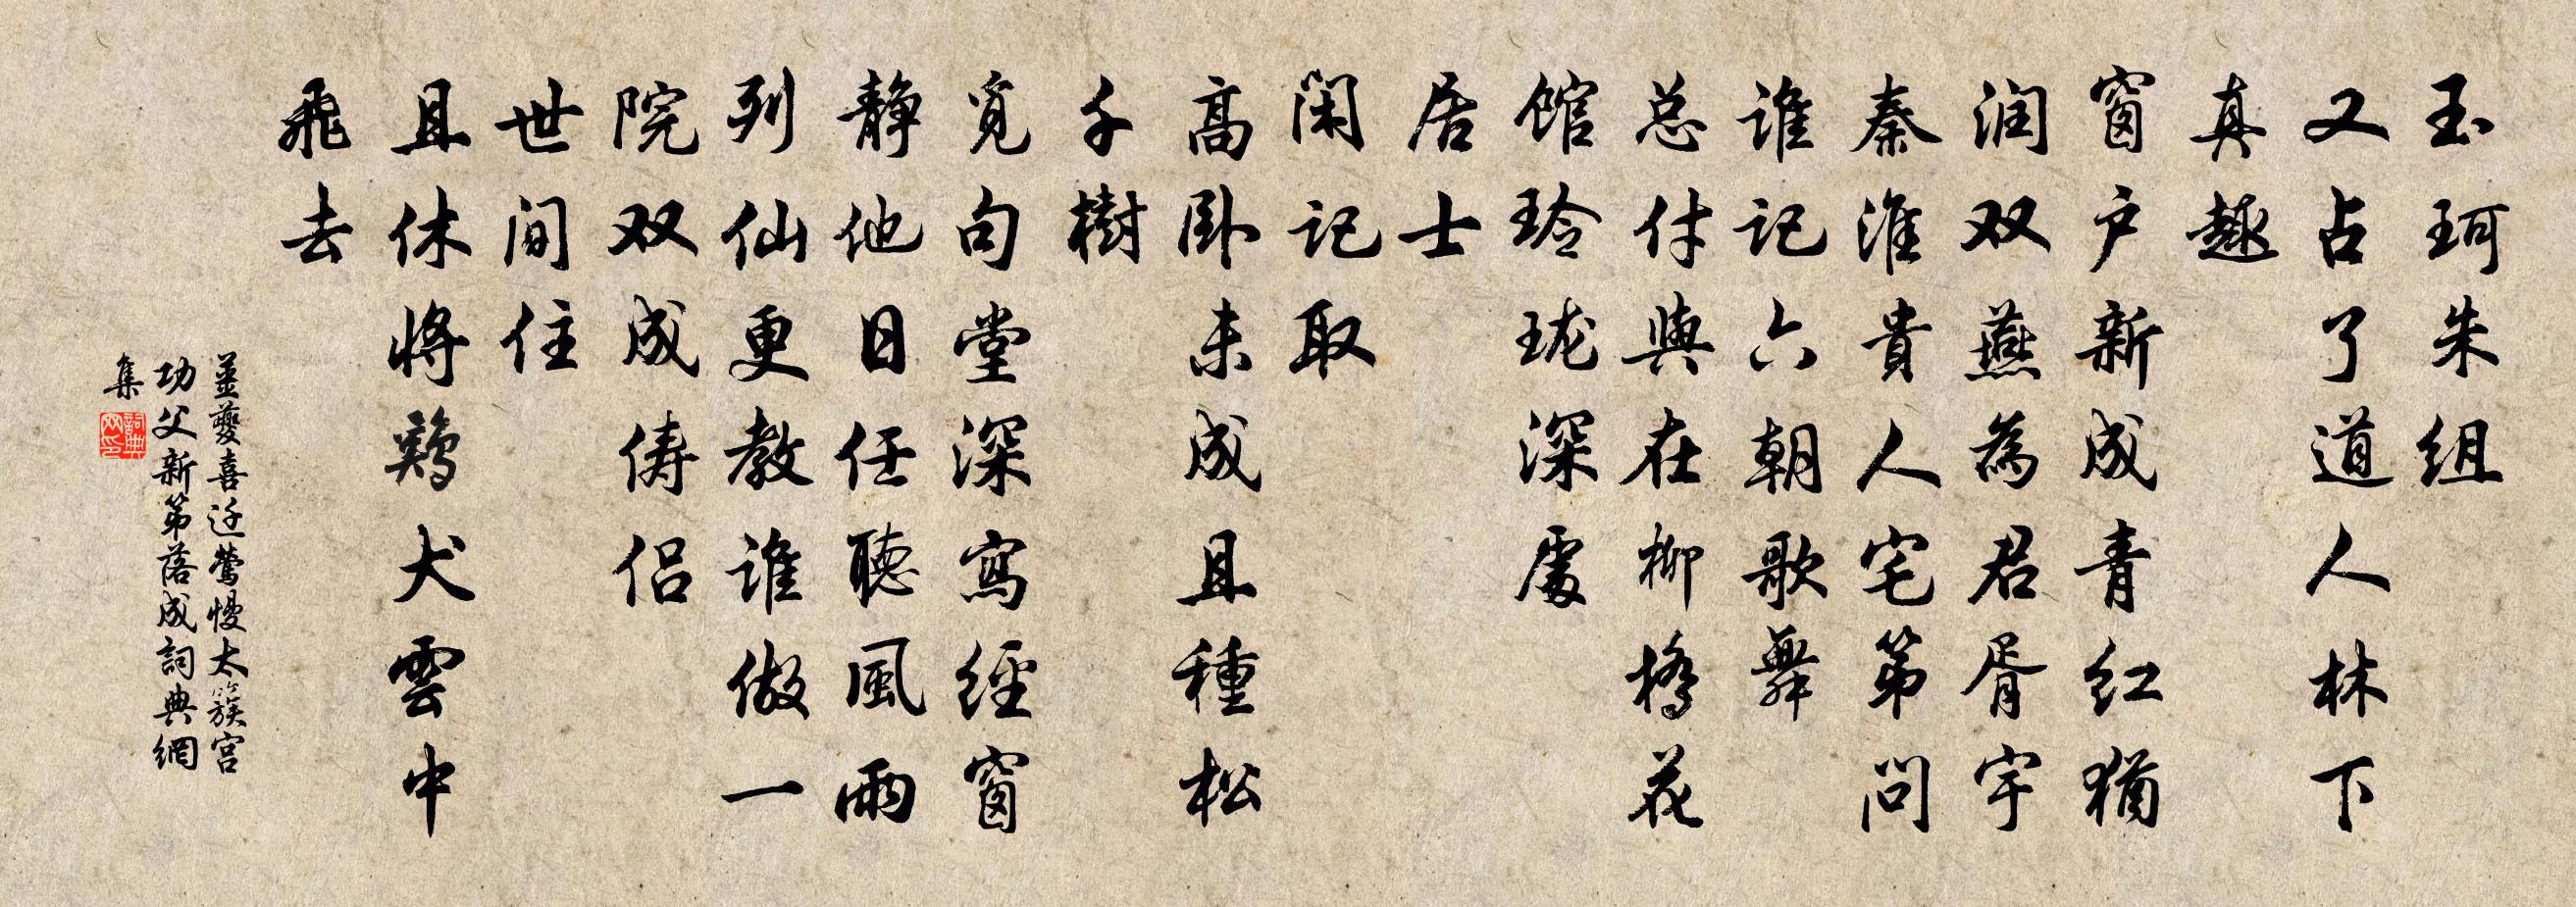 玉珂朱组
又占了道人林下
真趣
窗户新成青红犹
润双燕為君胥宇
秦淮貴人宅第问
谁记六朝歌舞
总付與在柳橋花
馆玲珑深處
居士
闲记取
高卧未成且種松
千樹
覓句堂深寫經窗
静他日任聽風雨
列仙更教谁做一
院双成俦侣
世间住
且休将鷄犬雲中
飛去
姜夔喜迁鶯慢太簇宫
功父新第落成詞典網
集
詞典網印